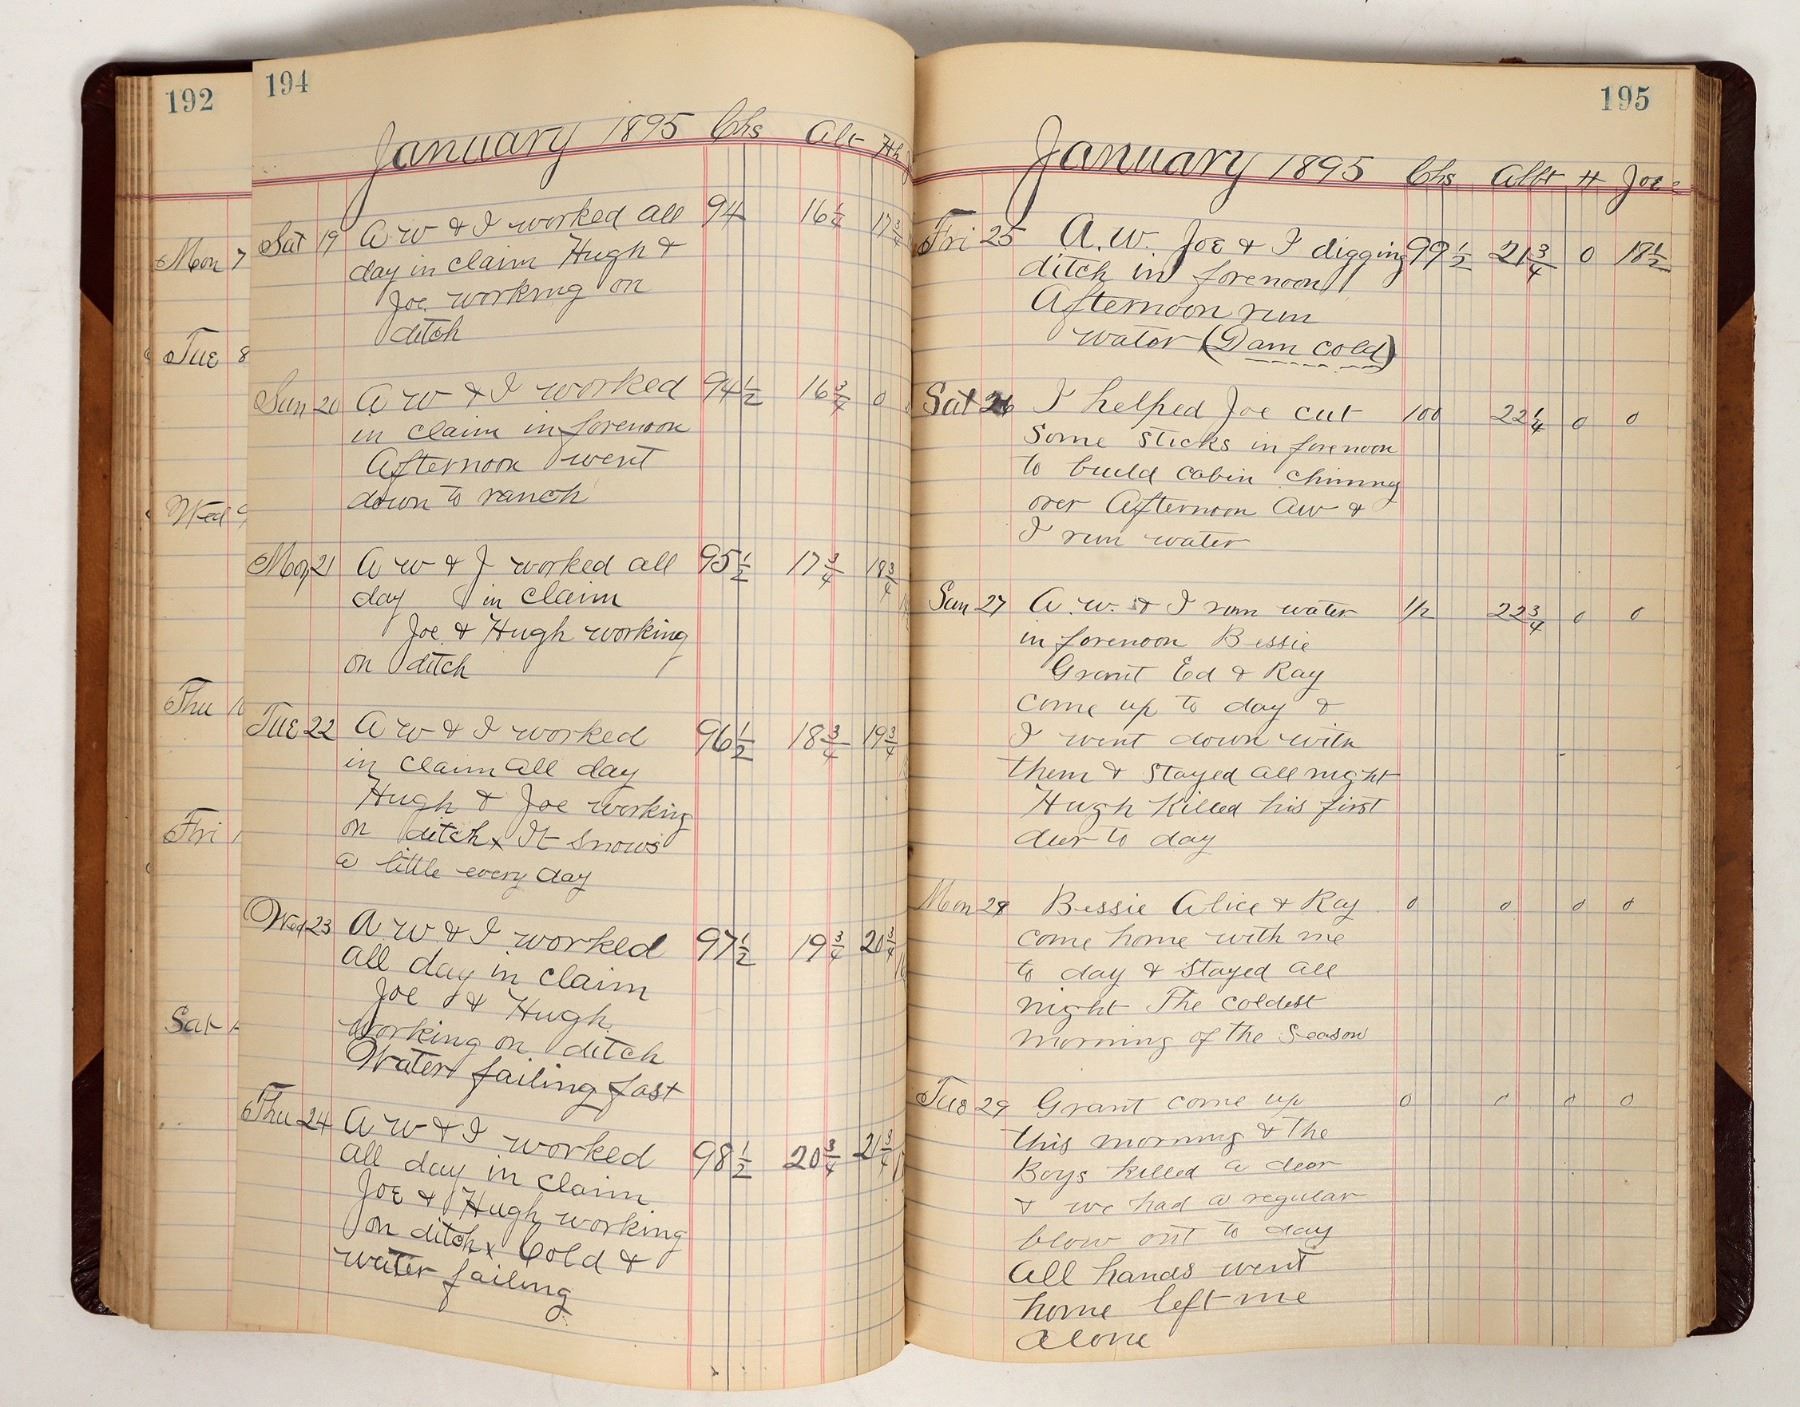 192
Mon 7
Tue 8
Wed 9
Thu
Fri
Sat
194
January 1895 Chs Alt Hh
Sat 19 A W & I worked all 94 16 1/4 17 3/4
day in claim Hugh &
Joe working on
ditch
Sun 20 A W & I worked 94 1/2 16 3/4 0
in claim in forenoon
Afternoon went
down to ranch
Mon 21 A W & I worked all 95 1/2 17 3/4
day in claim
Joe & Hugh working
on ditch
Tue 22 A W & I worked 96 1/2 18 3/4 19 3/4
in claim all day
Hugh & Joe working
on ditch x It snows
a little every day
Wed 23 A W & I worked 97 1/2 19 3/4 20 3/4
all day in claim
Joe & Hugh
working on ditch
Water failing fast
Thu 24 A W & I worked 98 1/2 20 3/4 21 3/4
all day in claim
Joe & Hugh working
on ditch x Cold &
water failing
195
January 1895 Chs Albt H Joe
Fri 25 A.W. Joe & I digging 99 1/2 21 3/4 0 18 1/2
ditch in forenoon
Afternoon run
water (Dam cold)
Sat 26 I helped Joe cut 100 22 1/4 0 0
Some sticks in forenoon
to build cabin chimny
over Afternoon AW &
I run water
Sun 27 A.W. & I run water 1/2 22 3/4 0 0
in forenoon Bessie
Grant Ed & Ray
come up to day &
I went down with
them & stayed all night
Hugh killed his first
deer to day
Mon 28 Bessie Alice & Ray 0 0 0 0
come home with me
to day & stayed all
night The coldest
morning of the season
Tue 29 Grant come up 0 0 0 0
this morning & the
Boys killed a dear
& we had a regular
blow out to day
All hands went
home left me
alone